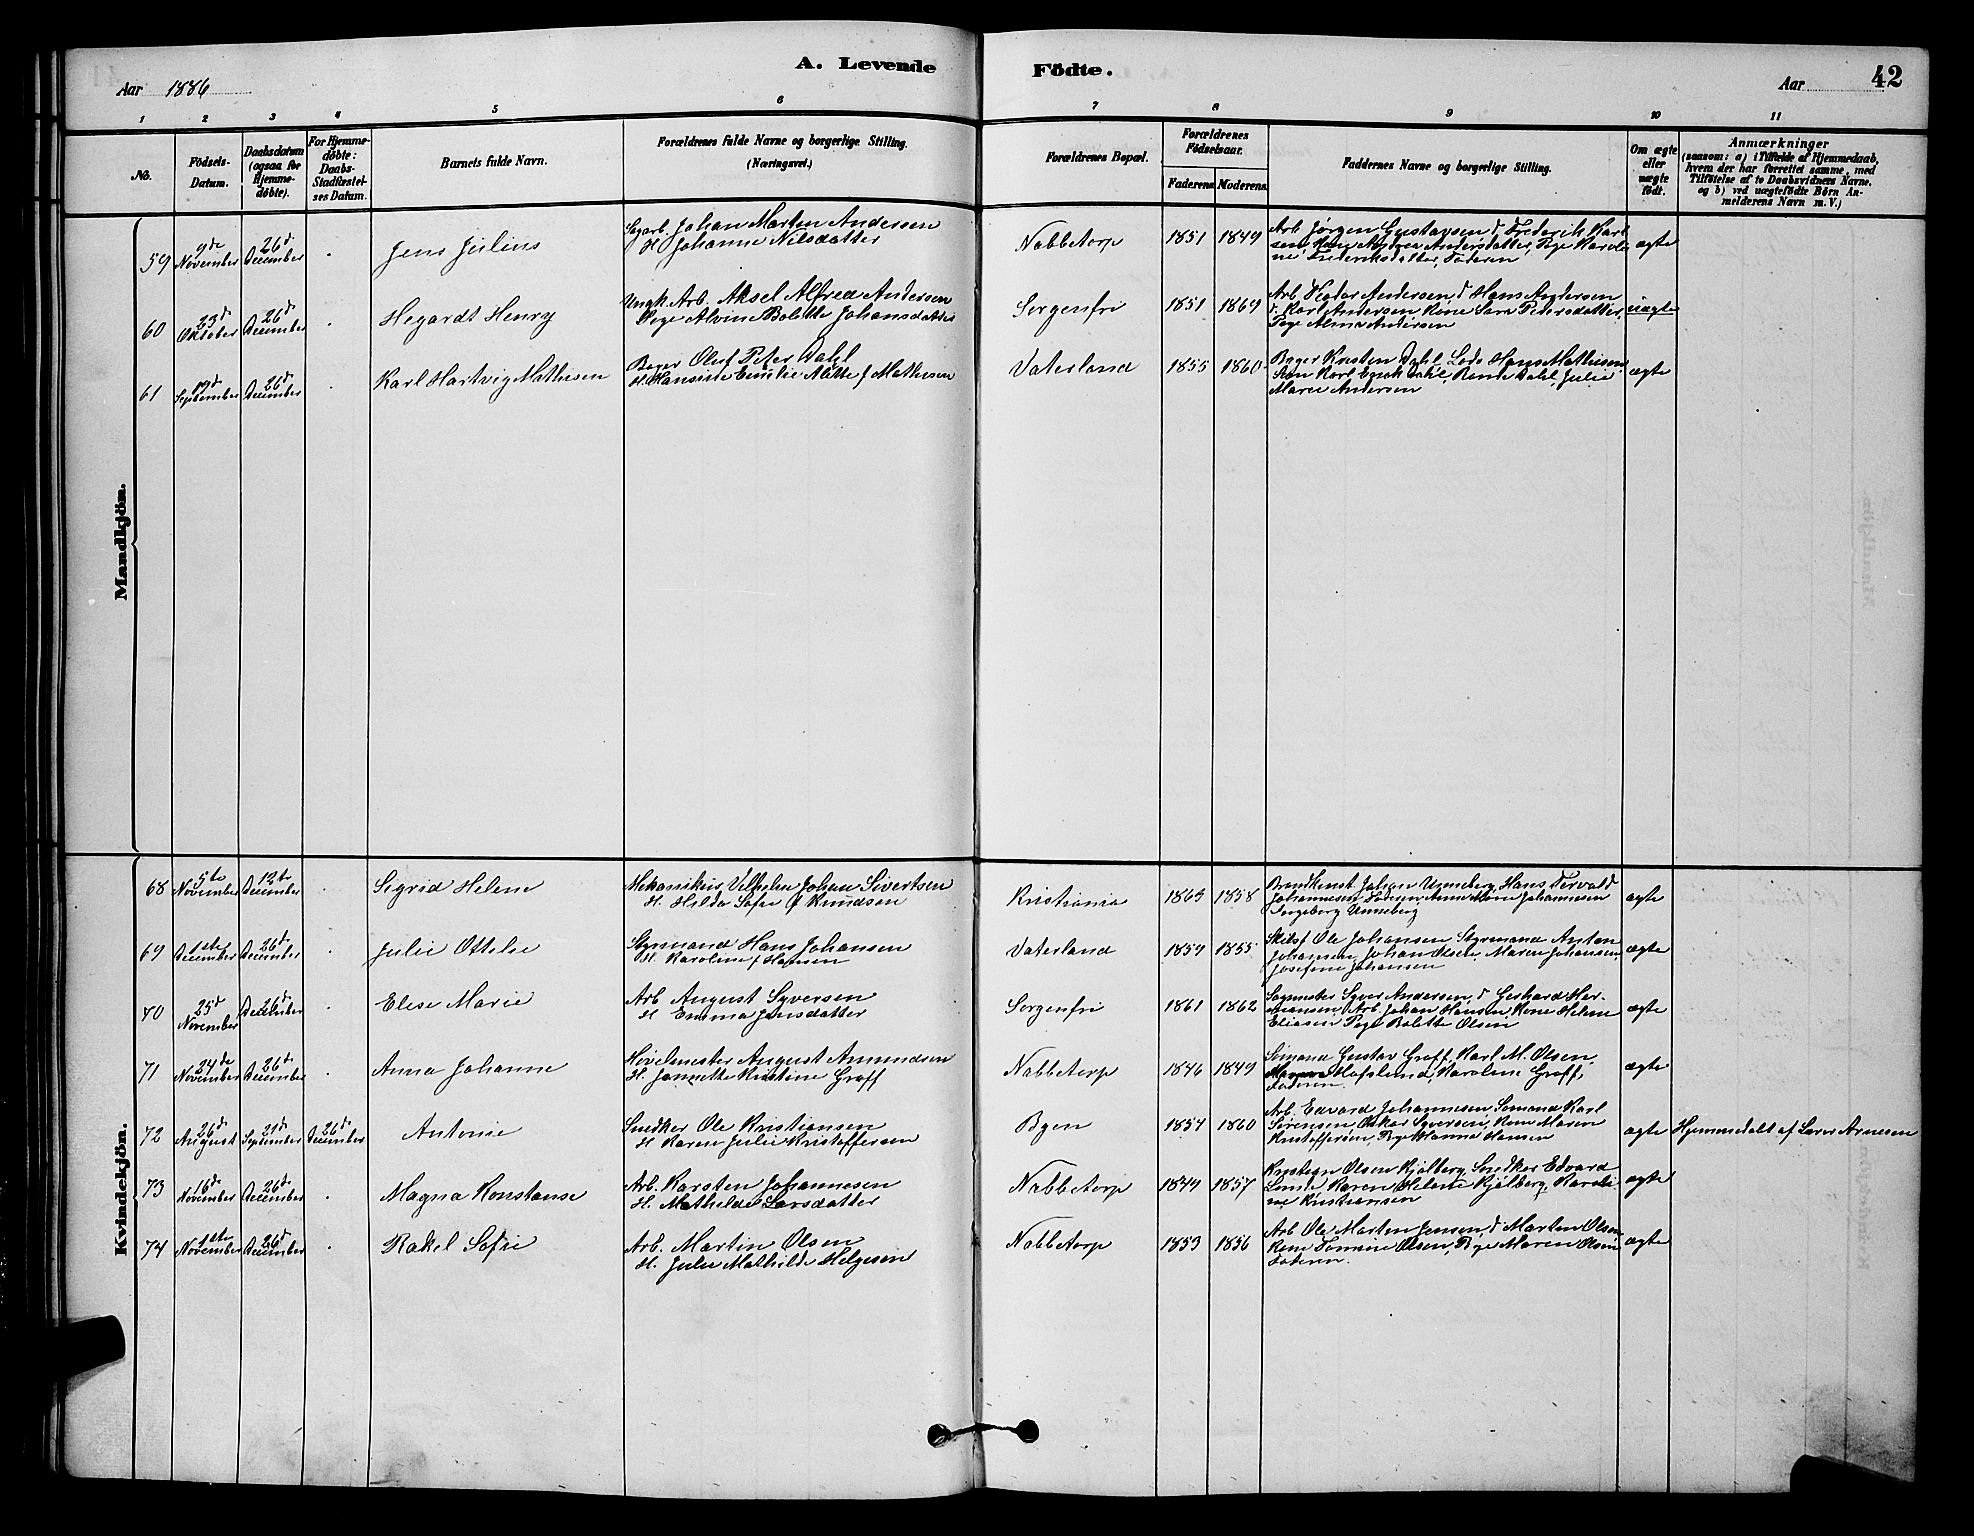 A. Levende Födte.
Aar 1886
Aar 42
1 2 3 4 5 6 7 8 9 10 11
No.
Födsels-Datum.
Daabsdatum (ogsaa for Hjemme-döbte).
For Hjemme-döbte: Daabs-Stadfæstel-ses Datum.
Barnets fulde Navn.
Forældrenes fulde Navne og borgerlige Stilling. (Næringsvei.)
Forældrenes Bopæl.
Forældrenes Födselsaar.
Faderens Moderens
Faddernes Navne og borgerlige Stilling.
Om ægte eller uægte födt.
Anmærkninger
(saasom: a) i Tilfælde af Hjemmedaab,
hvem der har forrettet samme, med
Tilföielse af to Daabsvidners Navne,
og b) ved uægtefödte Börn An-
melderens Navn m. V.)
Mandkjön.
59 9de November 26d December Jens Julius
Sagarb. Johan Marten Andersen
H. Johanne Nilsdatter
Nabbetorp 1851 1849
Arb. Jørgen Gustavsen, d Frederik Karl
sen, Kone Andrea Andersdatter, Pige Karoli
ne Frederiksdatter, Faderen
ægte
60 23d Oktober 26d December Hegardt Henry
Ungk. Arb. Aksel Alfred Andersen
Pige Alvine Bolette Johansdatter
Sorgenfri 1851 1869
Arb. Andersen, d Hans Andersen
d. Karl Andersen, Kone Sara Petersdatter,
Pige Alma Andersen
uægte
61 September 26d December Karl Hartvig Mathisen
Bager Oluf Peter Dahl
H. Hansine Emilie Mathisen
Vaterland 1855 1860
Bager Karsten Dahl, Lods Hans Mathisen
Karl Dahl, Dahl, Julie
Maren Andersen
ægte
Kvindekjön.
68 5te November 12te December Sigrid Helene
Mekanikus Vilhelm Johan Sivertsen
H. Hilda Sofie f Knudsen
Kristiania 1863 1858
Johan Unneberg, Hans Torvald
Johannesen, Faderen, Johannesen
Ingeborg Unneberg
ægte
69 1ste December 26de December Julie Ottilie
Styrmand Hans Johansen
H. Karoline f Hansen
Vaterland 1859 1855
Skibsf. Ole Johansen, Styrmand Anton
Johansen, Johan Olsen, Maren Johansen,
Josefine Johansen
ægte
70 25d November 26d December Elise Marie
Arb. August Syversen
H. Emma Jensdatter
Sorgenfri 1861 1862
Sagmester Syver Andersen, d Gerhard Her-
mansen, Arb. Johan Hansen, Kone Helene
Eliasen, Pige Bolette Olsen
ægte
71 24de November 26d December Anna Johanne
Høvelmester August Amundsen
H. Jannette Kristine Groff
Nabbetorp 1846 1849
Sömand Gustav Groff, Karl M. Olsen,
Hafslund, Karoline Groff,
Faderen.
ægte
72 26d August September 26d December Antonie
Snedker Ole Kristiansen
H. Karen Julie Kristoffersen
Byen 1854 1860
Arb. Edvard Johannesen, Sömand Karl
Sörensen, Oskar Syversen, Kone Maren
Kristoffersen, Pige Hanna Hansen
ægte Hjemmedøbt af Lærer Arnesen
73 16d November 26d December Magna Konstanse
Arb. Karsten Johannesen
H. Mathilde Larsdatter
Nabbetorp 1849 1857
Olsen Kjölberg, Snedker Edvard
Lunde, Karen Helene Kjölberg, Karoli-
ne Kristiansen
ægte
74 1ste November 26d December Rakel Sofie
Arb. Martin Olsen
H. Julie Mathilde Helgesen
Nabbetorp 1853 1856
Arb. Ole Marten Jensen, d Marten Olsen
Kone Tomine Olsen, Pige Maren Olsen
Faderen.
ægte